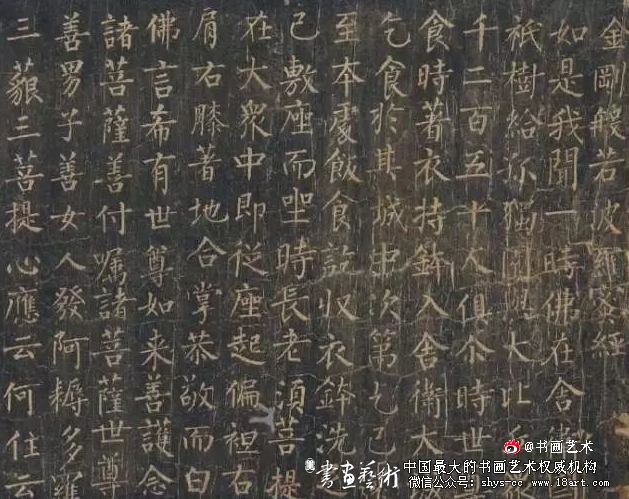 金剛般若波羅蜜經
如是我聞一時佛在舍
祇樹給孤獨園與大比丘
千二百五十人俱尒時世
食時著衣持鉢入舍衛大
乞食於其城中次第乞已
至本處飯食訖収衣鉢洗
已敷座而坐時長老須菩提
在大衆中即従座起偏袒右
肩右膝著地合掌恭敬而白
佛言希有世尊如来善護念
諸菩薩善付嘱諸菩薩世尊
善男子善女人發阿耨多羅
三藐三菩提心應云何住云
@书画艺术
書画藝術
中国最大的书画艺术权威机构
微信公众号：shys-cc www.18art.com